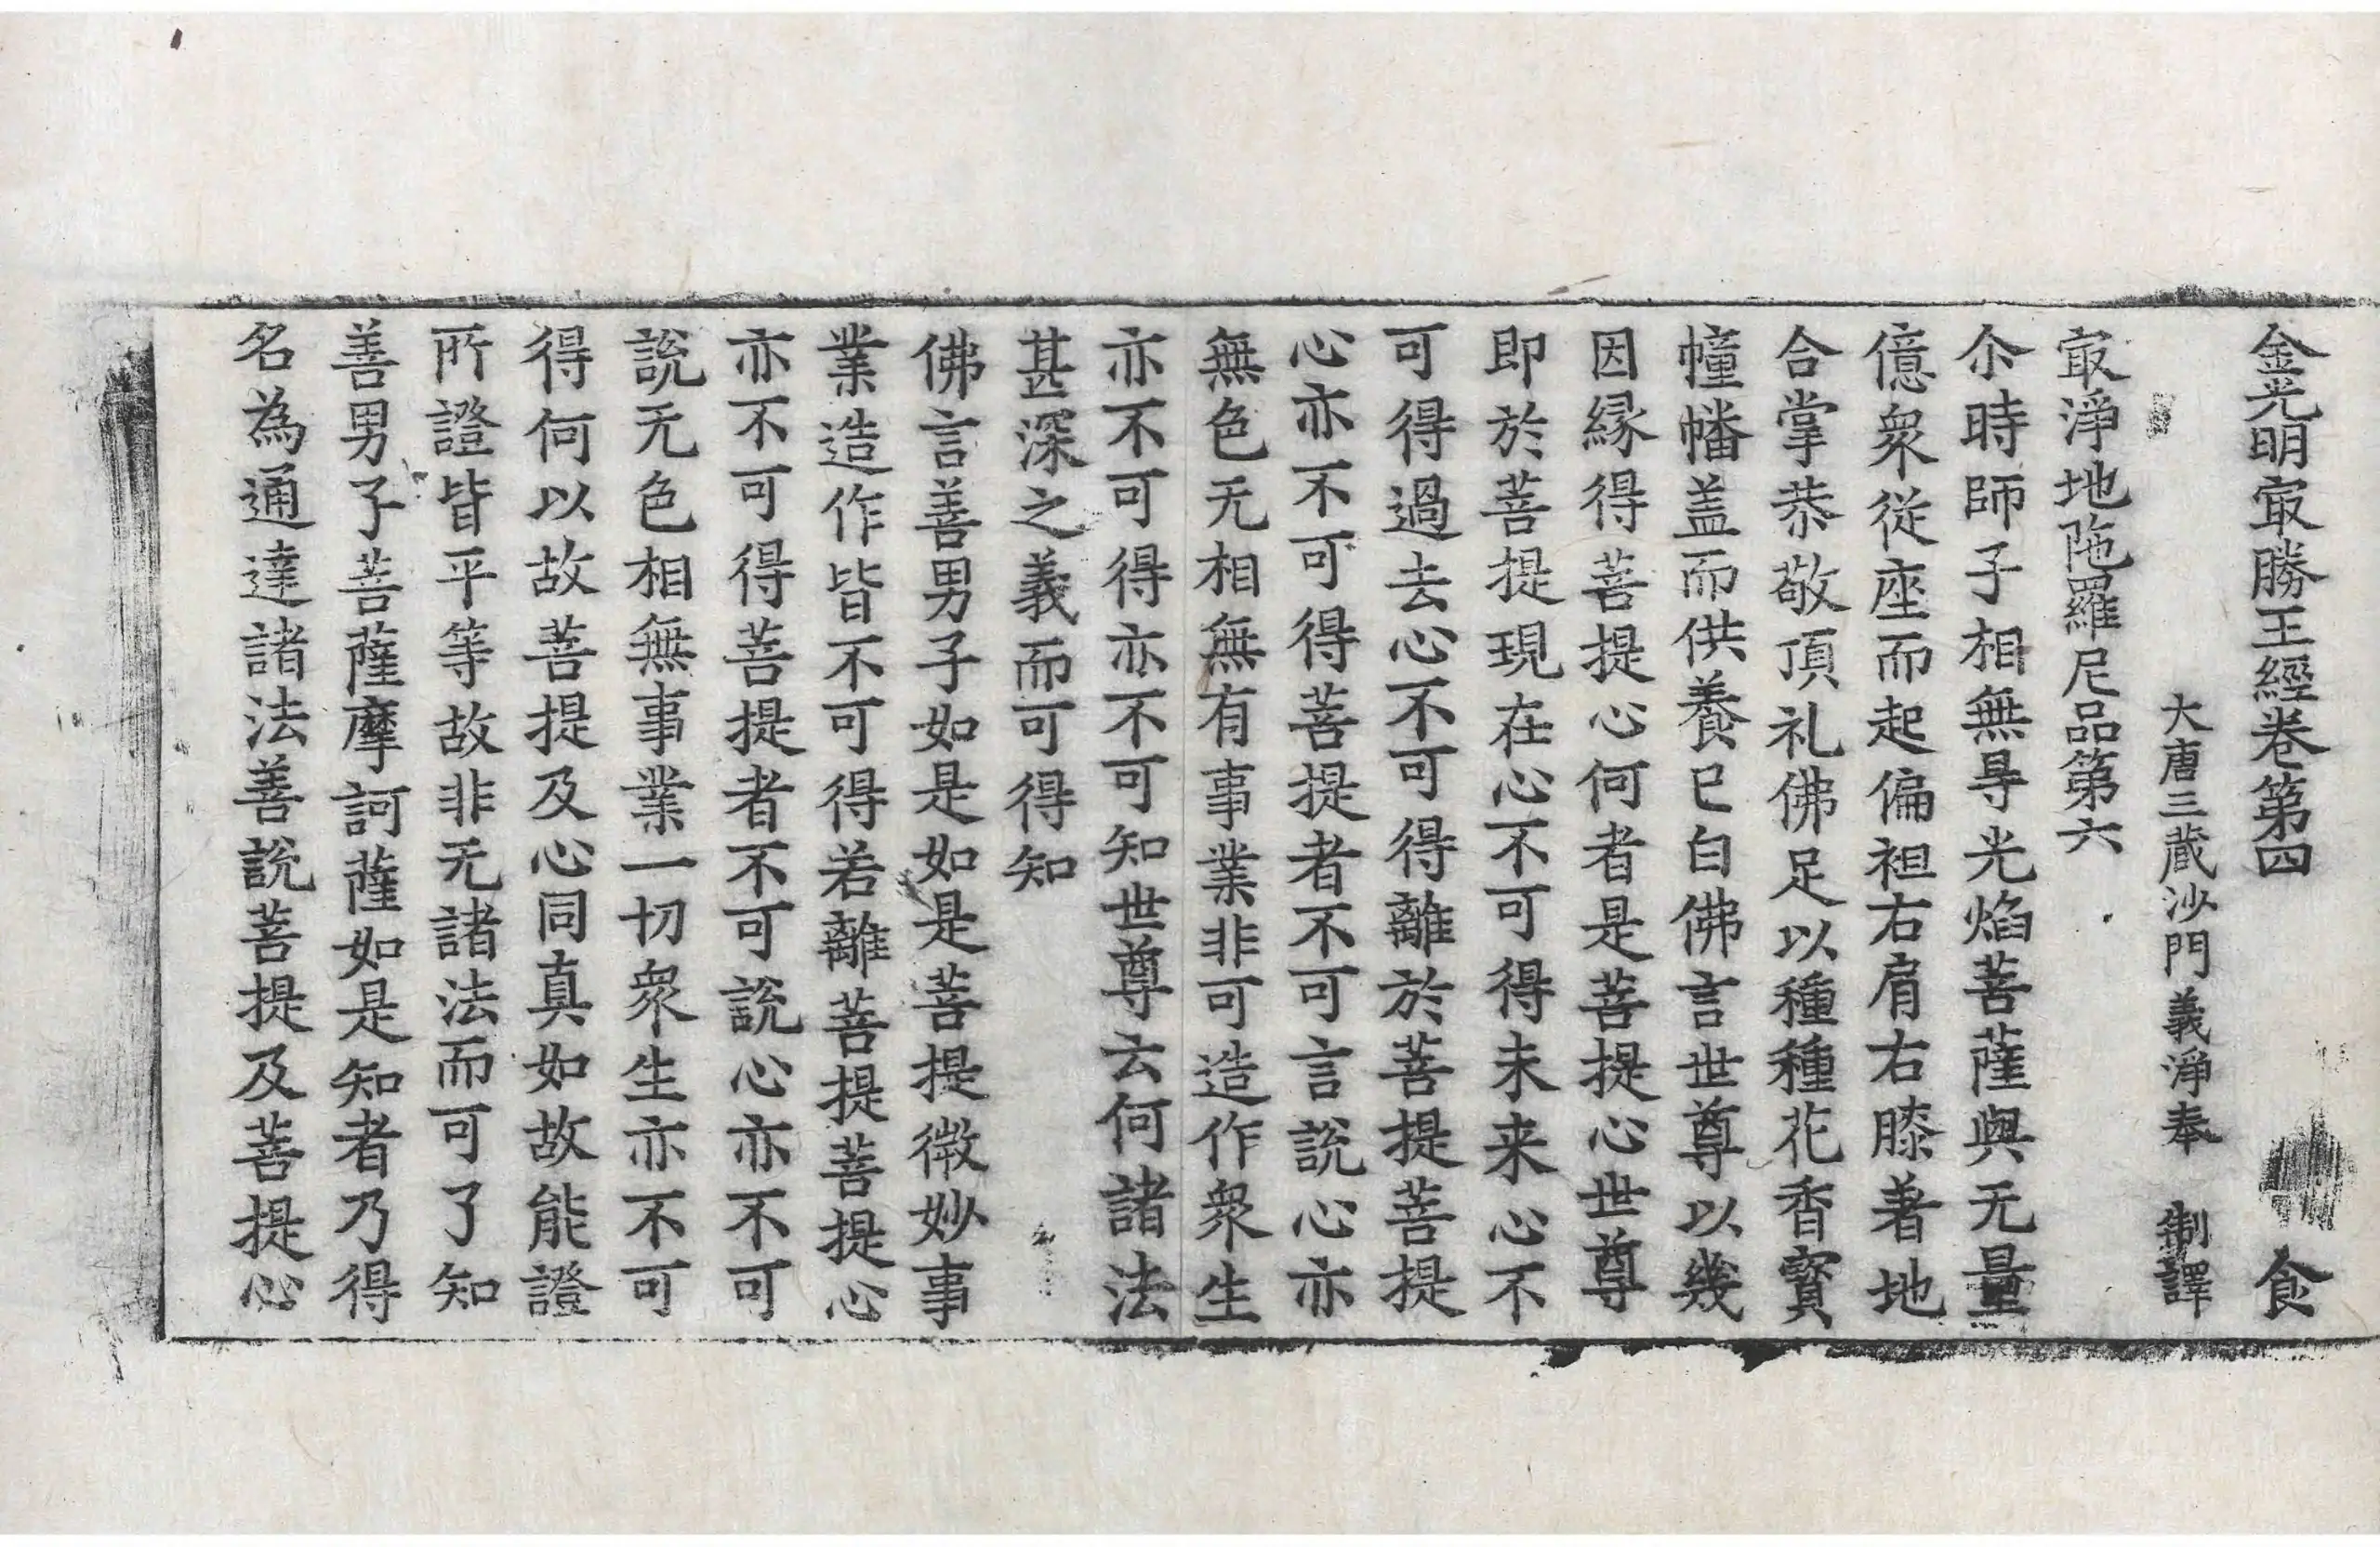 金光明㝡勝王經卷第四　食
大唐三藏沙門義淨奉　制譯
㝡淨地陁羅尼品第六
尒時師子相無㝵光焰菩薩與无量
億衆從座而起偏袒右肩右膝著地
合掌恭敬頂礼佛足以種種花香寳
幢幡盖而供養已白佛言世尊以幾
因緣得菩提心何者是菩提心世尊
即於菩提現在心不可得未来心不
可得過去心不可得離於菩提菩提
心亦不可得菩提者不可言說心亦
無色无相無有事業非可造作衆生
亦不可得亦不可知世尊云何諸法
甚深之義而可得知
佛言善男子如是如是菩提微妙事
業造作皆不可得若離菩提菩提心
亦不可得菩提者不可說心亦不可
說无色相無事業一切衆生亦不可
得何以故菩提及心同真如故能證
所證皆平等故非无諸法而可了知
善男子菩薩摩訶薩如是知者乃得
名為通達諸法善說菩提及菩提心